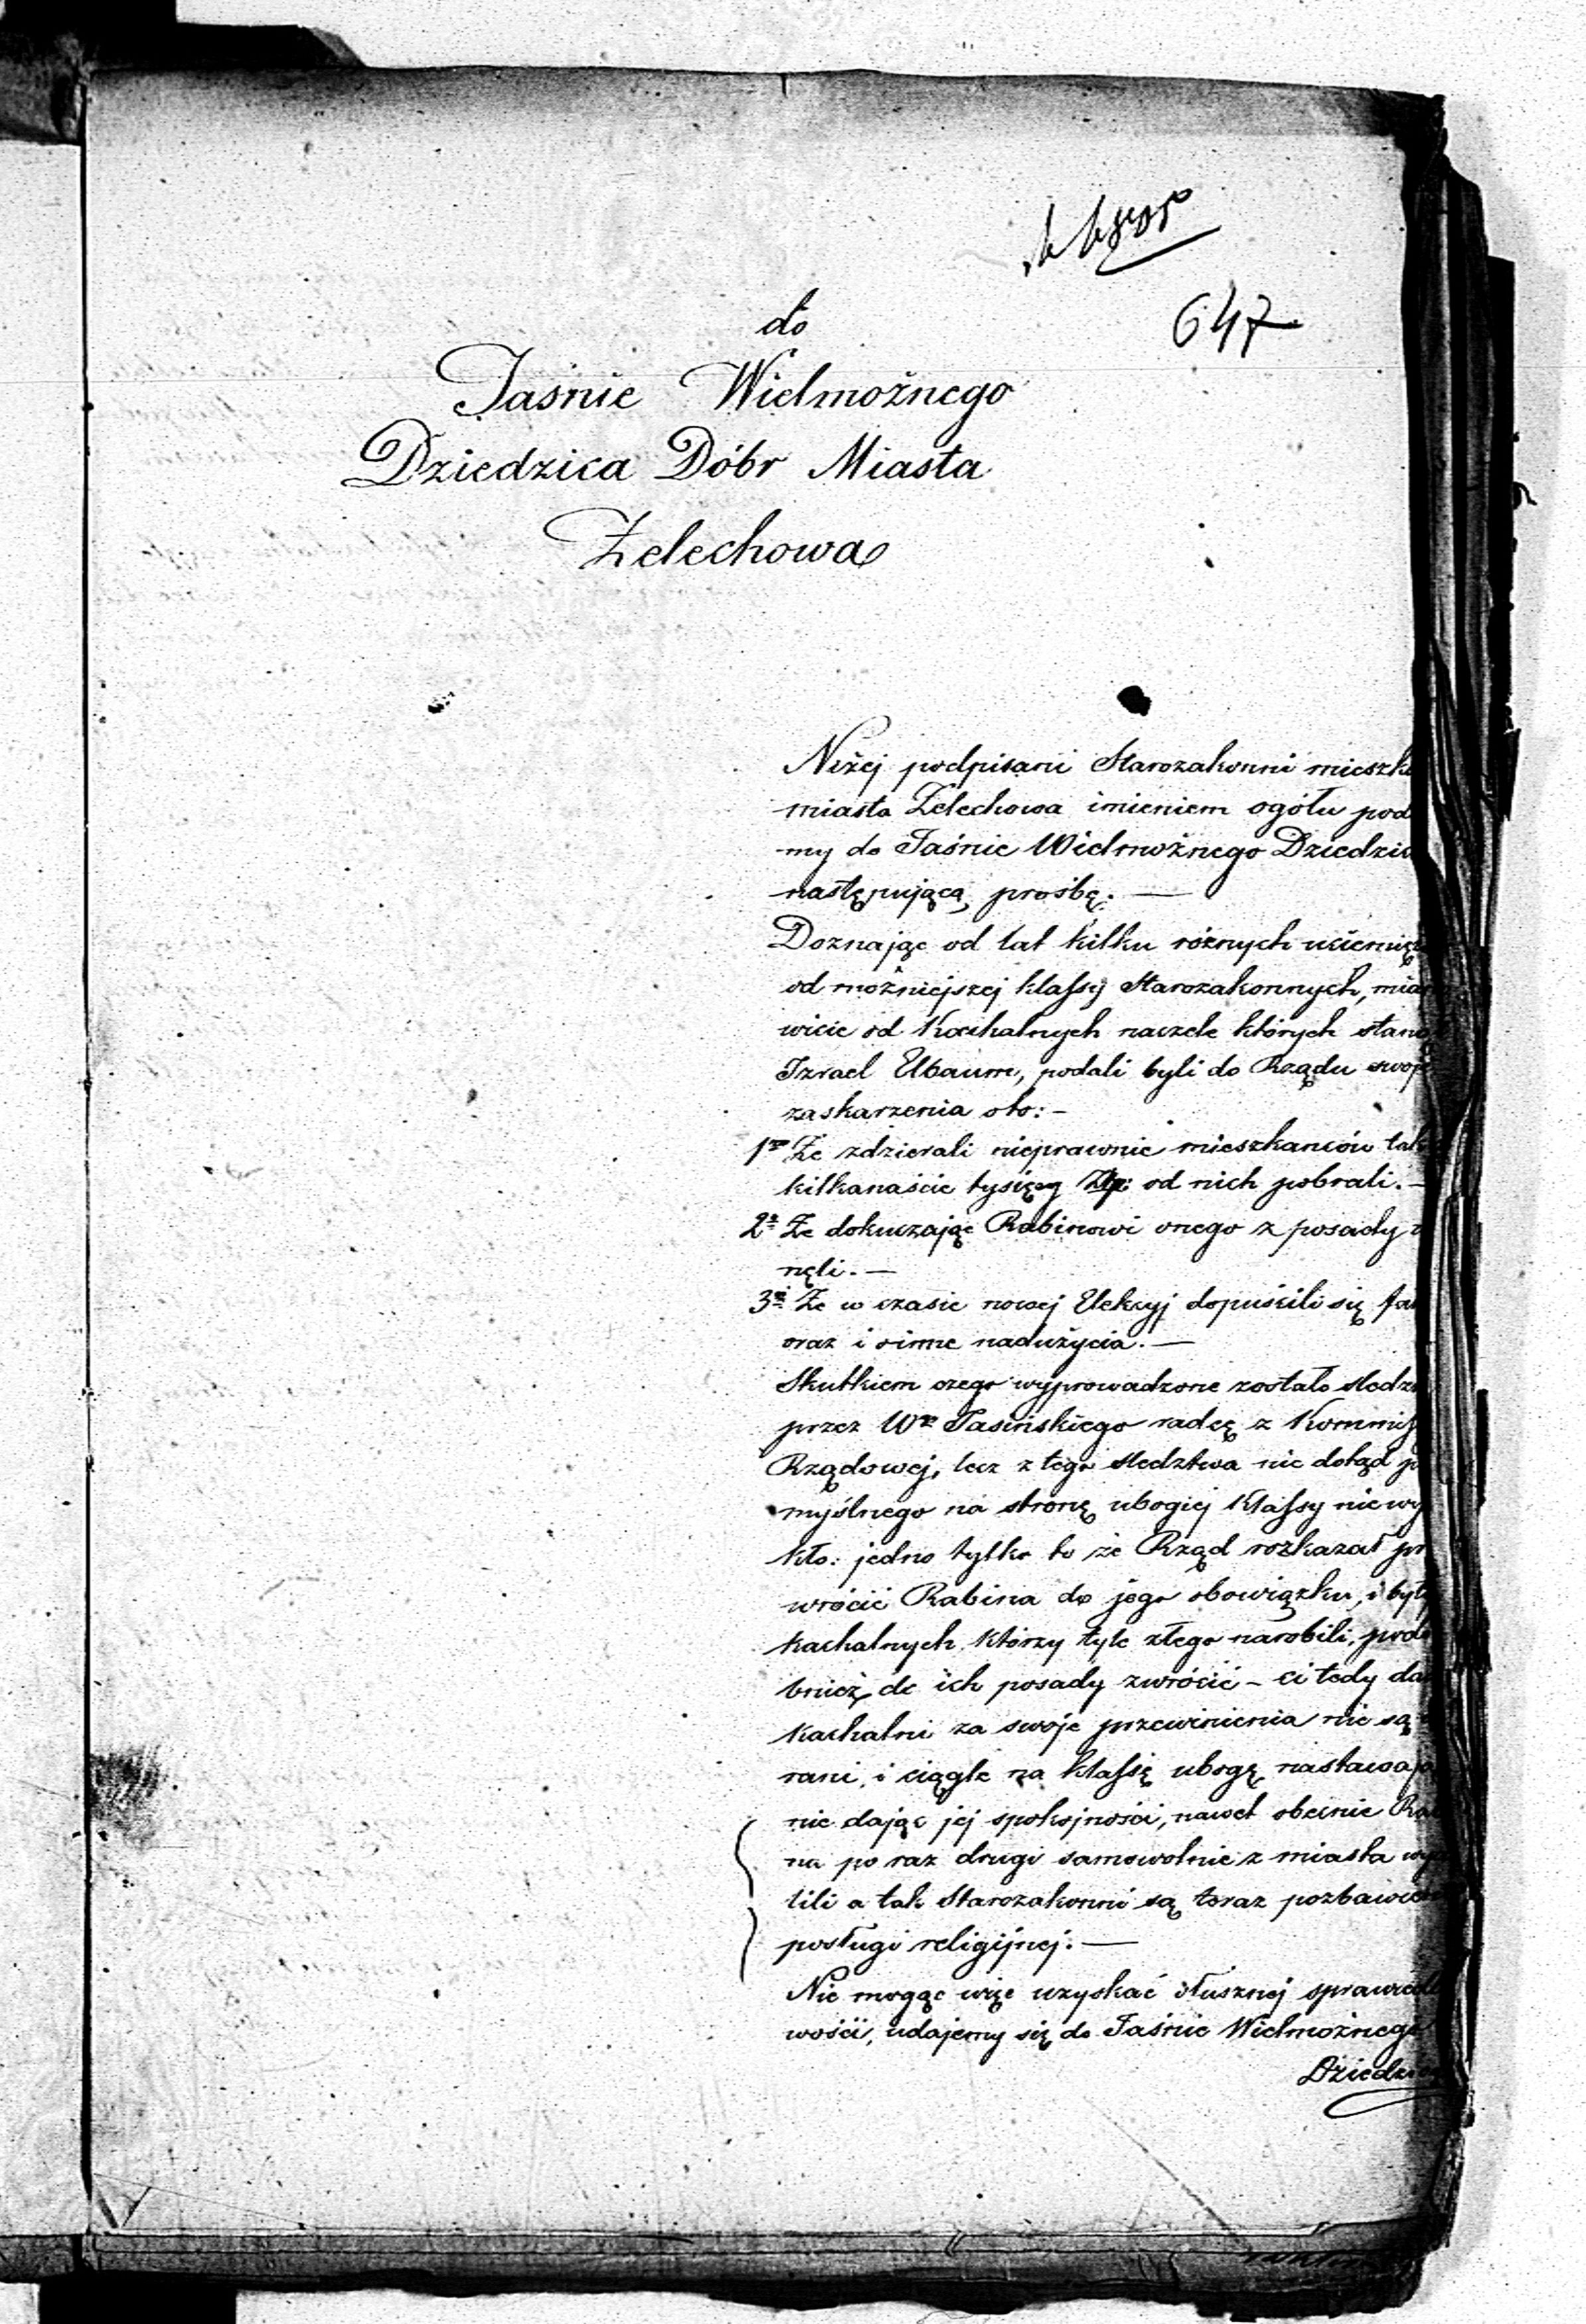 647
do
Jaśnie Wielmożnego
Dziedzica Dóbr Miasta
Żelechowa
Niżej podpisani Starozakonni mieszk
miasta Żelechowa imieniem ogółu pod
my do Jaśnie Wielmożnego Dziedzic
następującą prośbę. —
Doznając od lat kilku różnych uciemię
od możniejszej klassy Starozakonnych, mia
wicie od Kachalnych naczele których stan
Izrael Elbaum, podali byli do Rządu swoje
zaskarzenia oto: –
1mo Że zdzierali nieprawnie mieszkańców tak
kilkanaście tysięcy Złp: od nich pobrali. –
2o Że dokuczając Rabinowi onego z posady
nęli. —
3o Że w czasie nowej Elekcyj dopuścili się fał
oraz i inne nadużycia. —
Skutkiem czego wyprowadzone zostało sledz
przez Wo Jasińskiego radcę z Kommiss
Rządowej, lecz z tego sledztwa nic dotąd po
myślnego na stronę ubogiej Klassy niewy
kło: jedno tylko to że Rząd rozkazał pr
wrócić Rabina do jego obowiązku, i był
kachalnych którzy tyle złego narobili, podo
bnież do ich posady zwrócić – ci tedy da
kachalni za swoje przewinienia nie są
rani, i ciągle na klassę ubogę nastawają
nie dając jej spokojności, nawet obecnie Ra
na po raz drugi samowolnie z miasta wy
lili a tak Starozakonni są teraz pozbawie
posługi religijnej. —
Nie mogąc więc uzyskać słusznej sprawiedli
wości, udajemy się do Jaśnie Wielmożnego
Dziedzic